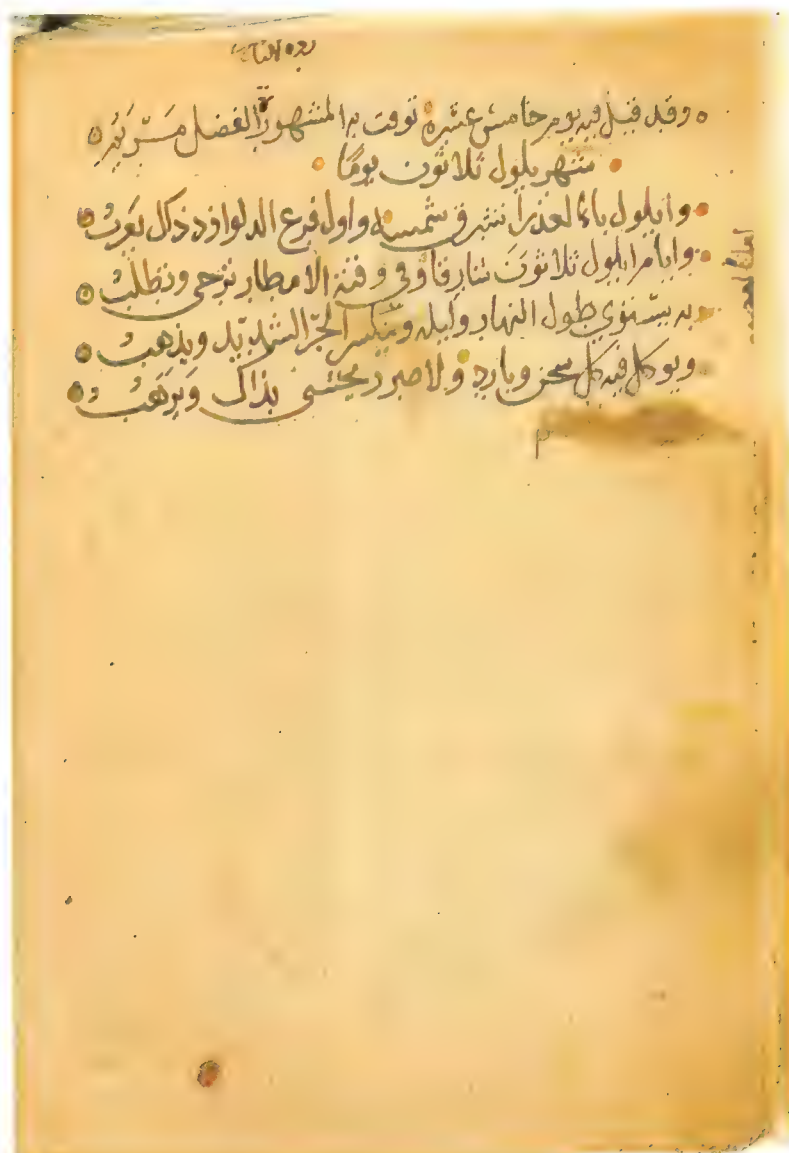 وقد قيل فيه يوم خامس عشره توفت به المشهورة الفضل مريم
شهر يلول ثلاثون يومًا
وايلول باء العذرا تشرق شمسه واول فرع الدلو اذ ذاك يغربُ
وايام ايلول ثلاثونَ تنا وفي وفتة الامطار ترجى وتطلبُ
به يستوي طول النهار وليله وينكسر الحرّ الشديد ويذهبُ
ويوكل فيه كل سخن وبارد ولا صرد يختشى بذاك ويرهبُ
م